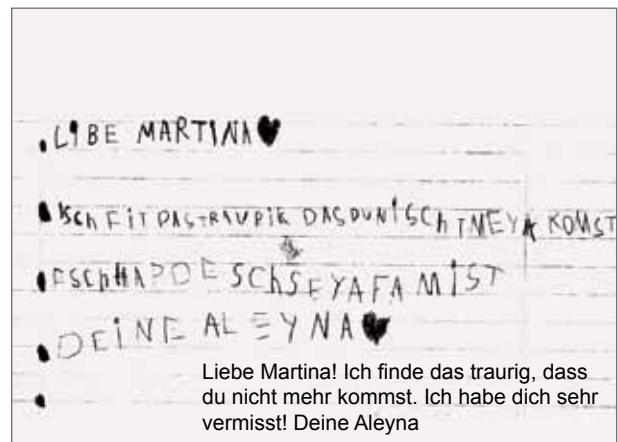 LIBE MARTINA♥
ISCh FiT DASTRAUPIK DASDUNiSCh TMEYA KOMST
ESChHAPDESChSEYAFAMiST
DEiNE ALEYNA♥
Liebe Martina! Ich finde das traurig, dass
du nicht mehr kommst. Ich habe dich sehr
vermisst! Deine Aleyna